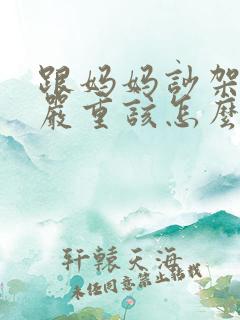 跟妈妈訬架
嚴重該怎麼
轩辕天海
未经同意禁止转载